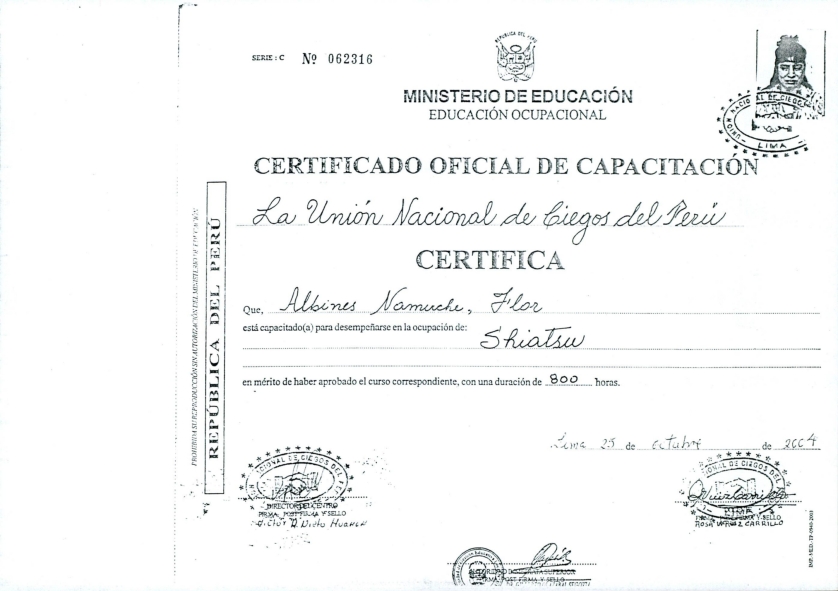 SERIE : C Nº 062316
REPÚBLICA DEL PERÚ
MINISTERIO DE EDUCACIÓN
EDUCACIÓN OCUPACIONAL
UNIÓN NACIONAL DE CIEGOS
LIMA
CERTIFICADO OFICIAL DE CAPACITACIÓN
La Unión Nacional de Ciegos del Perú
CERTIFICA
Que, Albines Namuche, Flor
está capacitado(a) para desempeñarse en la ocupación de:
Shiatsu
en mérito de haber aprobado el curso correspondiente, con una duración de 800 horas.
Lima 25 de octubre de 2004
REPÚBLICA DEL PERÚ
PROHIBIDA SU REPRODUCCIÓN SIN AUTORIZACIÓN DEL MINISTERIO DE EDUCACIÓN
NACIONAL DE CIEGOS DEL
DIRECTOR DEL CENTRO
FIRMA, POST FIRMA Y SELLO
NACIONAL DE CIEGOS DEL
LIMA
FIRMA Y SELLO
FIRMA, POST FIRMA Y SELLO